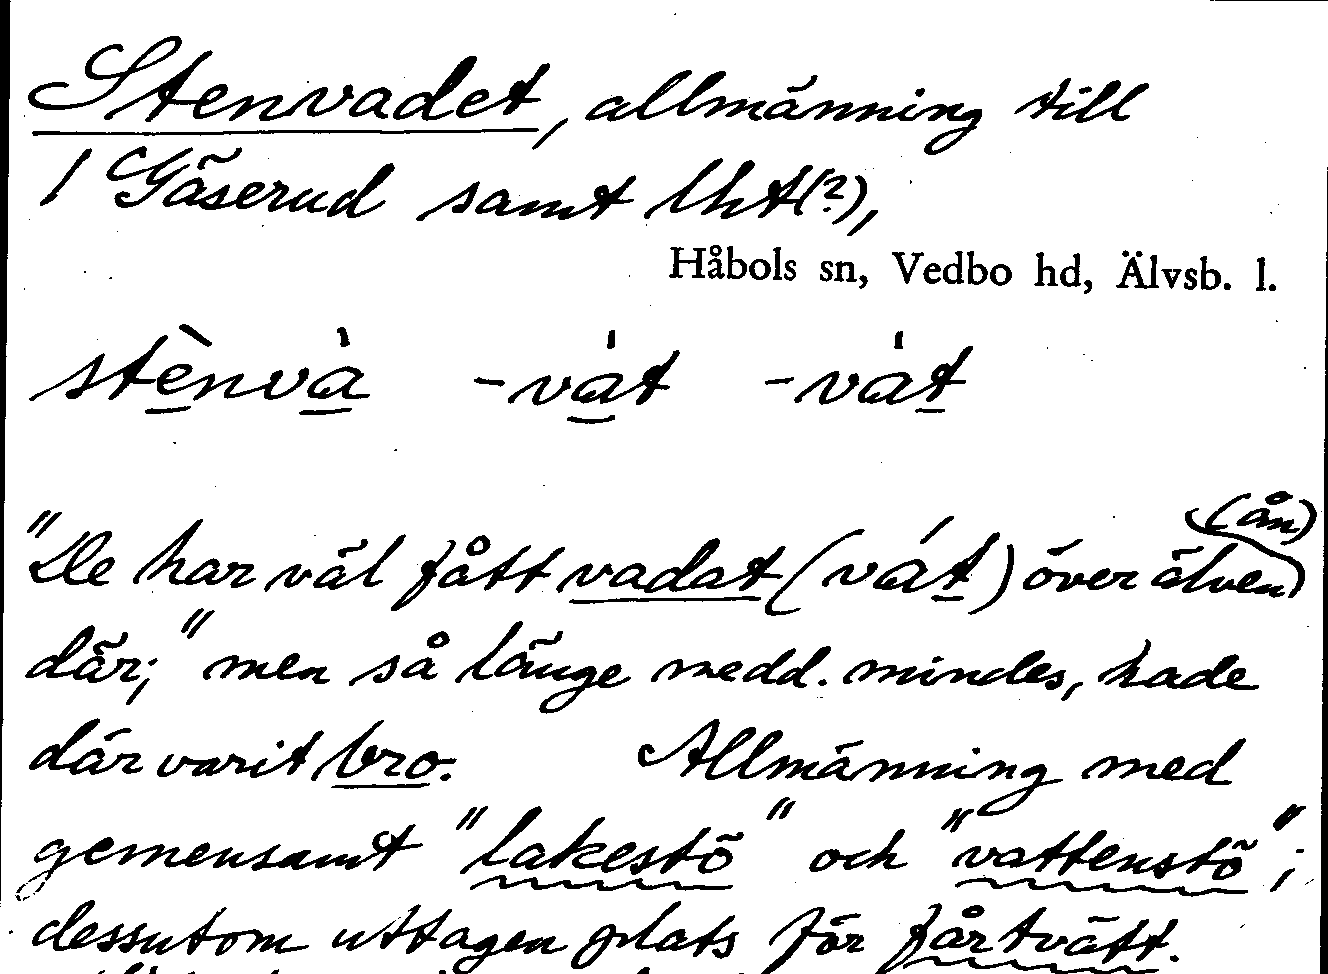 Stenvadet, allmänning till
1 Gäserud samt lht(?),
Håbols sn, Vedbo hd, Älvsb. l.
stènvà -vát -vát
(ån)
"De har väl fått vadat (vát) över älven
där;" men så länge medd. mindes, hade
där varit bro. Allmänning med
gemensamt "lakestö" och "vattenstö";
dessutom uttagen plats för fårtvätt.